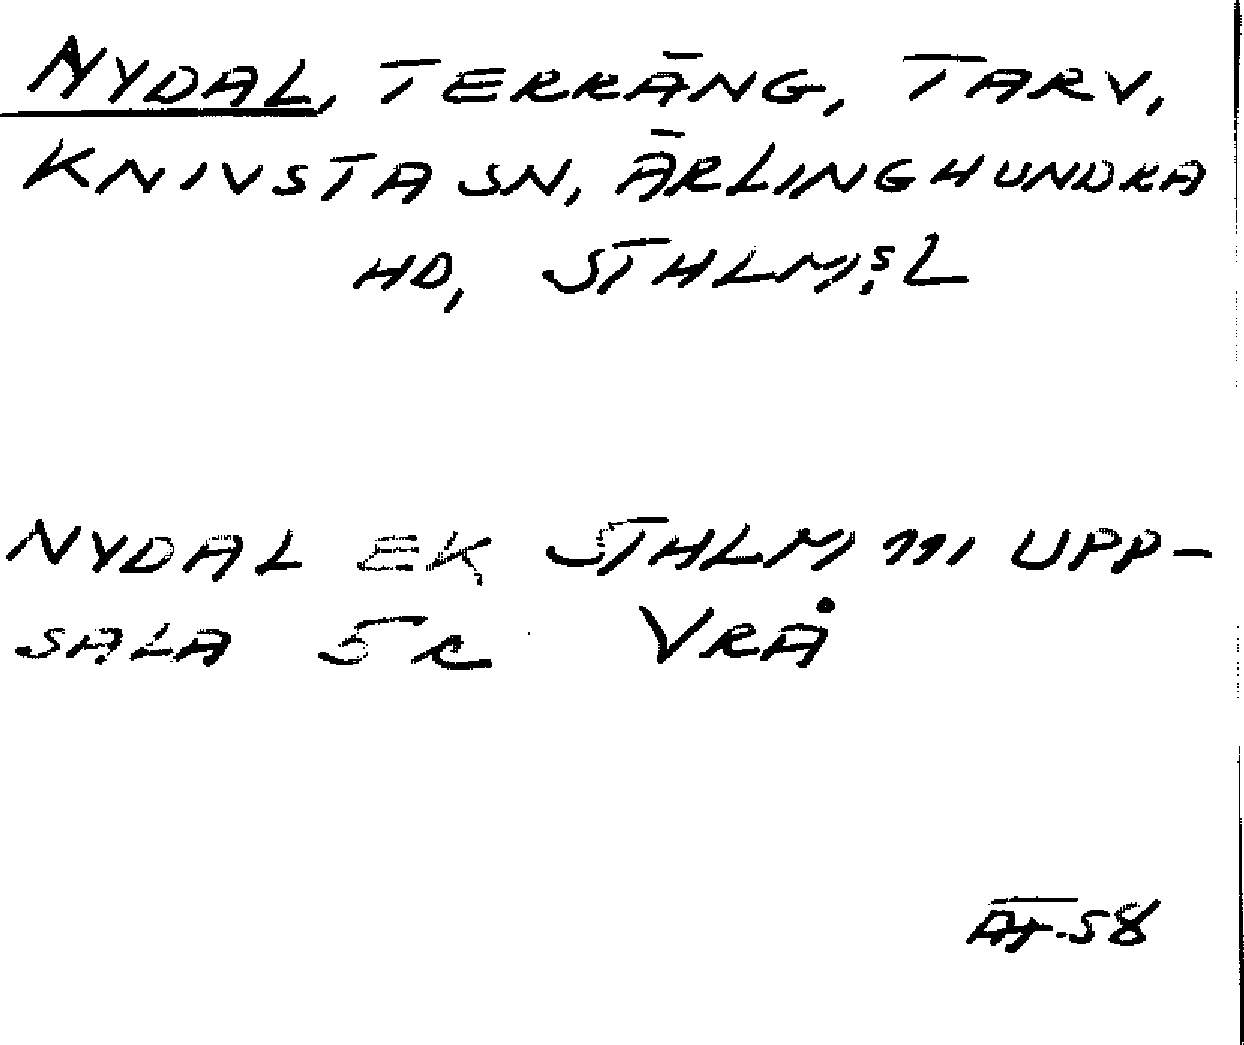 NYDAL, TERRÄNG, TARV,
KNIVSTA SN, ÄRLINGHUNDRA
HD, STHLM:S L
NYDAL EK STHLM M UPP-
SALA 5 R VRÅ